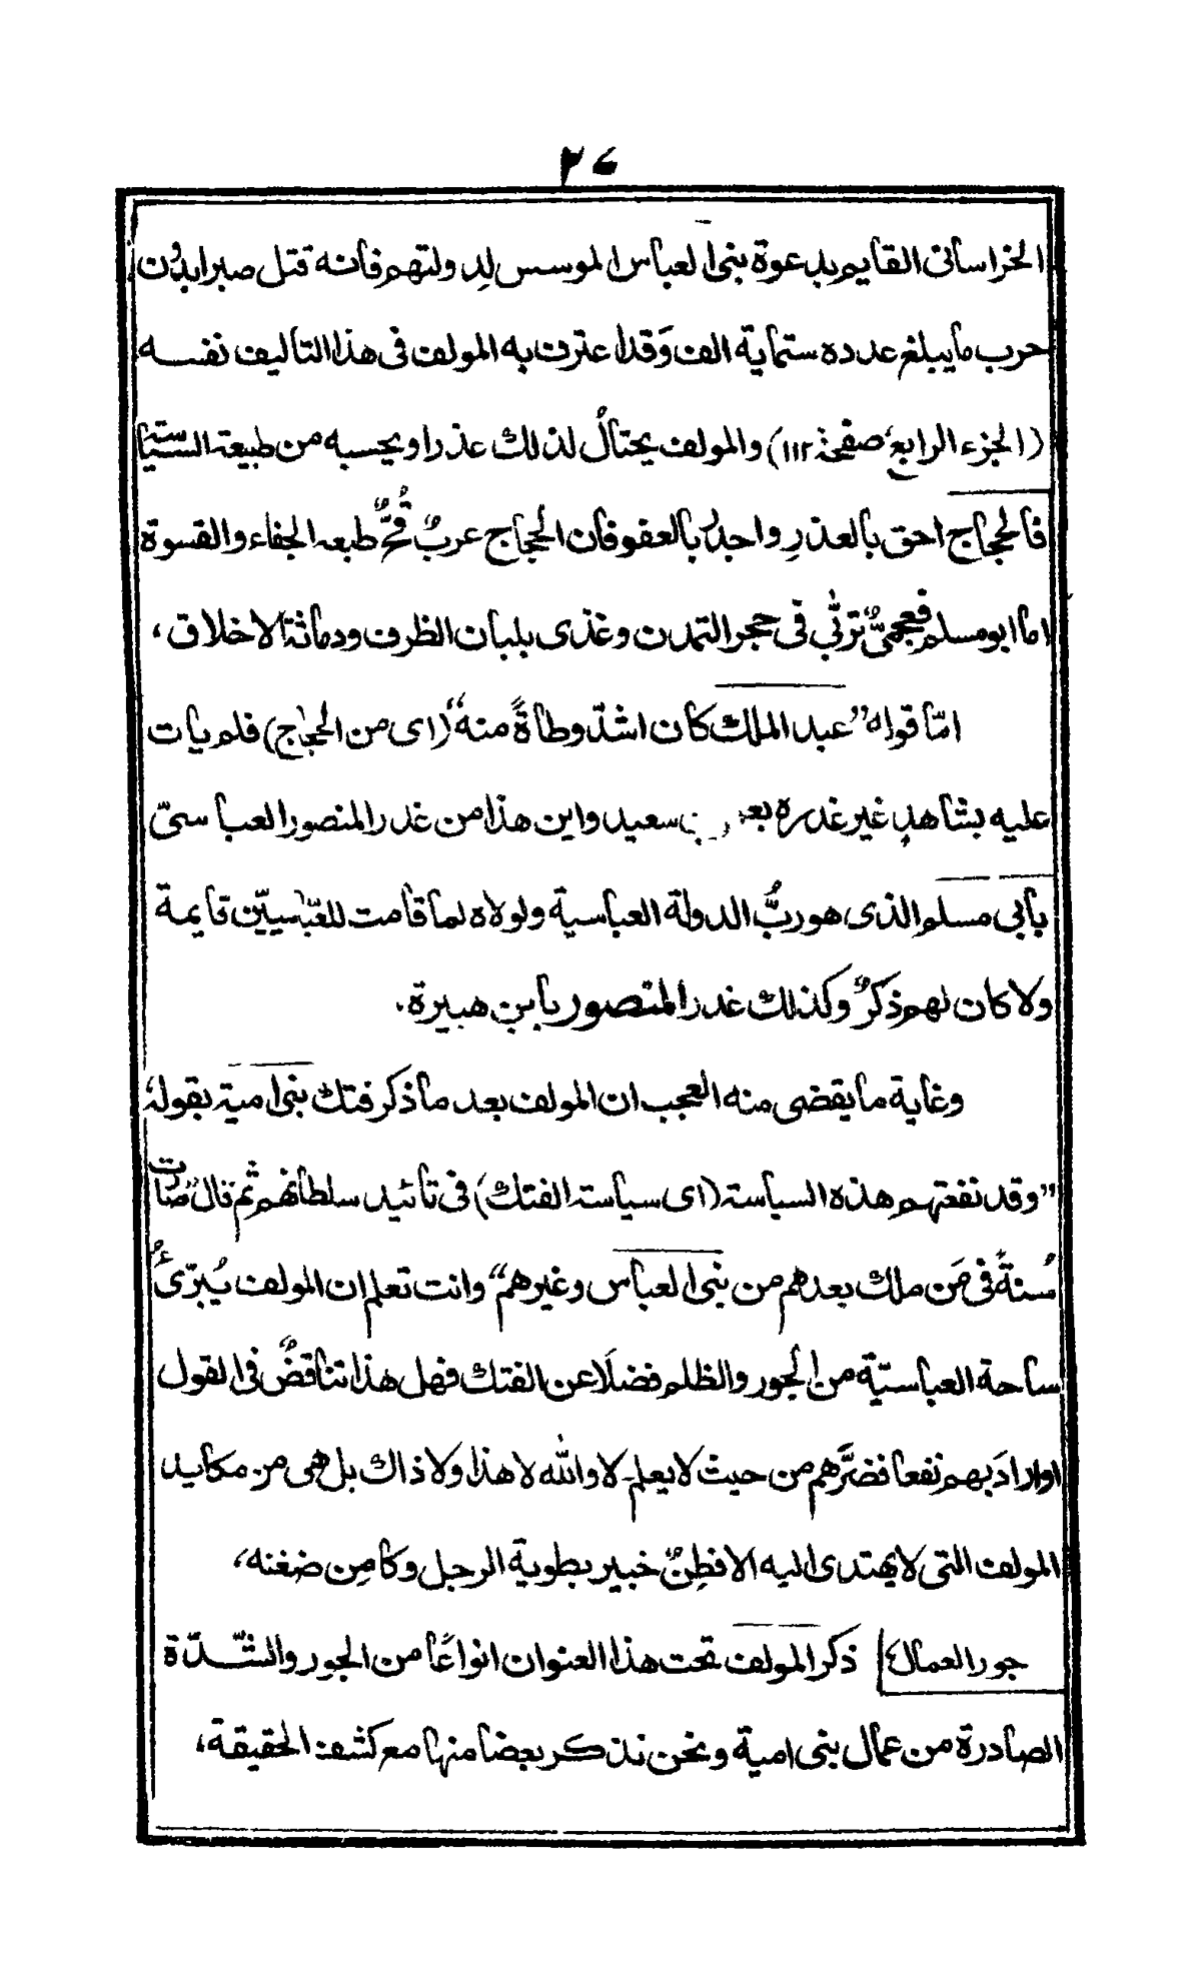 ٢٧
الخراسانى القايم بدعوة بنى العباس الموسس لدولتهم فانه قتل صبرا بدون
حرب ما يبلغ عدده ستماية الف وَقد اعترف به المولف فى هذا التاليف نفسه
(الجزء الرابع، صفحة ١١٢) والمولف يحتالُ لذلك عذرا ويحسبه من طبيعة السياسة
فالحجاج احق بالعذرِ واجدرُ بالعفو فان الحجاج عربىٌ قُحٌّ طبعه الجفاء والقسوة
اما ابو مسلم فعجمىٌّ تربّى فى حجر التمدن وغذى بلبان الظرف ودماثة الاخلاق،
امّا قوله ”عبد الملك كان اشدّ وطاةً منه“ (اى من الحجاج) فلم يات
عليه بشاهدٍ غير غدره سعيد واين هذا من غدر المنصور العباسىّ
بابى مسلم الذى هو ربُّ الدولة العباسية ولولاه لما قامت للعبّاسيّين قايمة
ولا كان لهم ذكرٌ وكذلك غدر المنصور بابن هبيرة.
وغاية ما يقضى منه العجب ان المولف بعد ما ذكر فتك بنى امية بقوله
”وقد نفعتهم هذه السياسة (اى سياسة الفتك) فى تائيد سلطانهم ثم قال صارت
سُنةً فى مَن ملك بعدهم من بنى العباس وغيرهم“ وانت تعلم ان المولف يُبرّئُ
ساحة العباسيّة من الجور والظلم فضلًا عن الفتك فهل هذا تناقضٌ فى القول
او ارادَ بهم نفعا فضرَّهم من حيث لا يعلم لا والله لا هذا ولا ذاك بل هى من مكايد
المولف التى لا يهتدى اليه الا فطِنٌ خبير بطوية الرجل وكامِن ضغنه،
جور العمال ذكر المولف تحت هذا العنوان انواعًا من الجور والشّدّة
الصادرة من عمال بنى امية ونحن نذكر بعضا منها مع كشف الحقيقة،